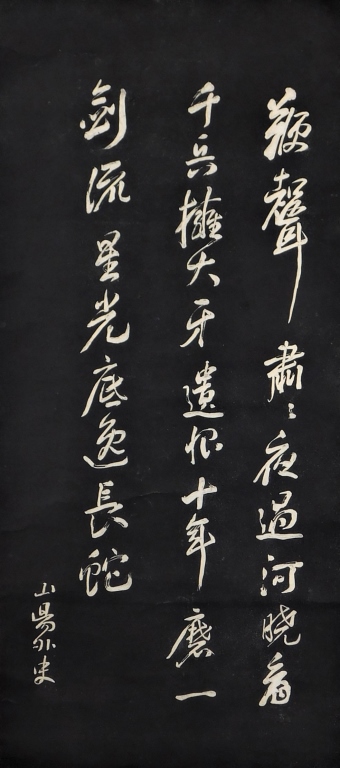 鞭聲肅〻夜過河曉看
千兵擁大牙遺恨十年磨一
劍流星光底逸長蛇
山陽外史